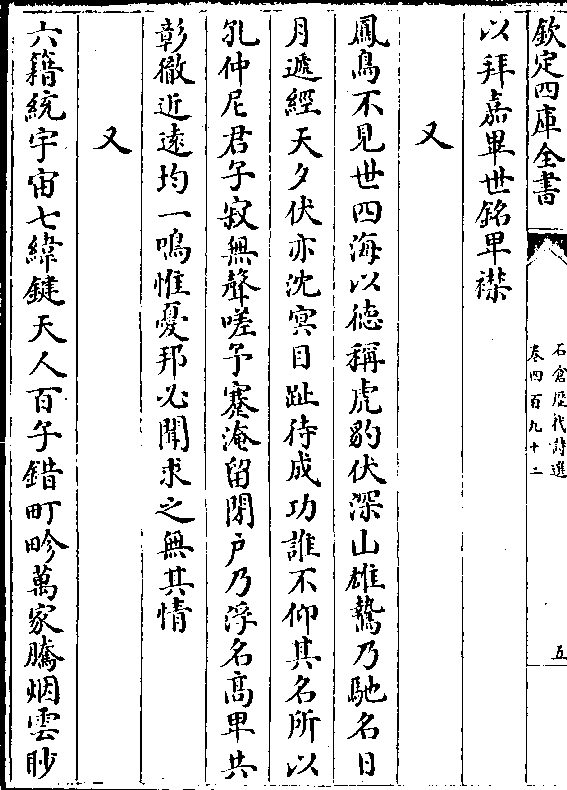 欽定四庫全書
石倉歷代詩選
卷四百九十二
五
以拜嘉畢世銘畀襟
又
鳳鳥不見世四海以徳稱虎豹伏深山雄鷙乃馳名日
月遞經天夕伏亦沈㝠目趾待成功誰不仰其名所以
孔仲尼君子寂無聲嗟予蹇淹留閉户乃浮名髙卑共
彰徹近逺均一鳴惟憂邦必聞求之無其情
又
六籍統宇宙七緯鍵天人百子錯町畛萬家騰烟雲眇